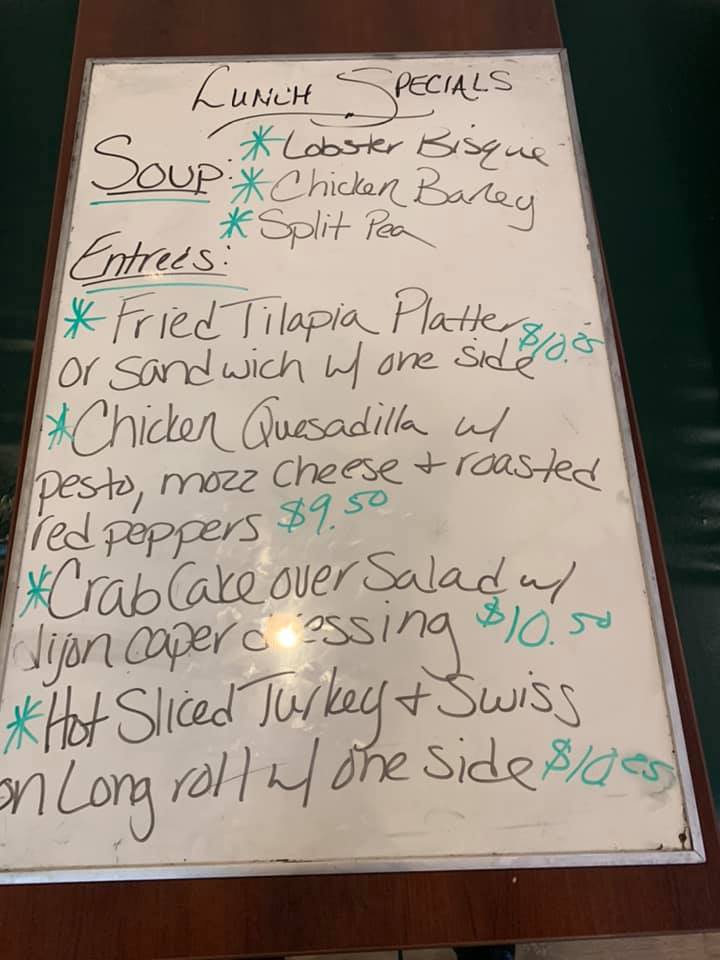 LUNCH SPECIALS
SOUP: * Lobster Bisque
* Chicken Barley
* Split Pea
Entreés:
* Fried Tilapia Platter
or sandwich w/ one side
* Chicken Quesadilla w/
pesto, mozz cheese + roasted
red peppers $9.50
* Crab Cake over Salad w/
dijon caper dressing $10.50
* Hot Sliced Turkey + Swiss
on Long roll w/ one side